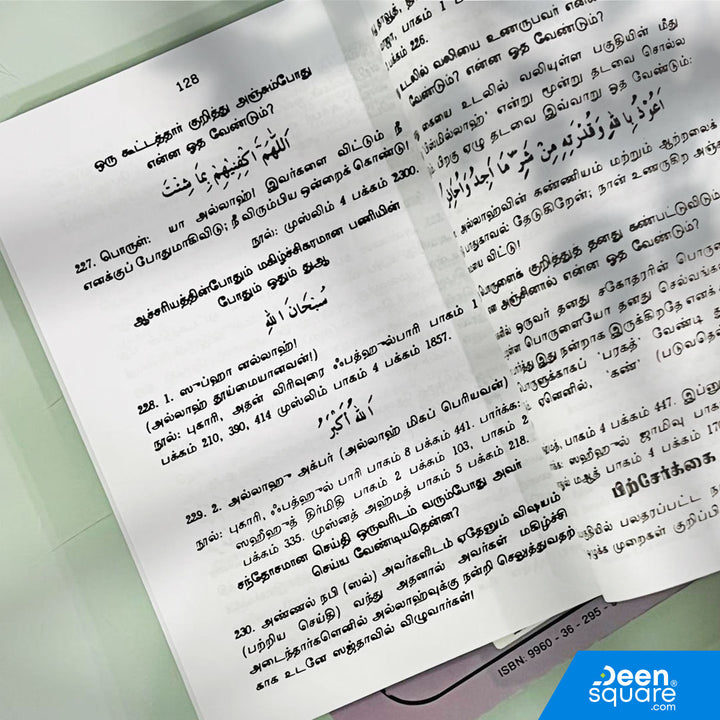 128
ஒரு கூட்டத்தார் குறித்து அஞ்சும்போது
என்ன ஓத வேண்டும்?
اَللّٰهُمَّ اكْفِنِيْهِمْ بِمَا شِئْتَ
227. பொருள்: யா அல்லாஹ்! இவர்களை விட்டும் நீ
எனக்குப் போதுமாகிவிடு; நீ விரும்பிய ஒன்றைக் கொண்டு!
நூல்: முஸ்லிம் 4 பக்கம் 2300.
ஆச்சரியத்தின்போதும் மகிழ்ச்சிகரமான பணியின்
போதும் ஓதும் துஆ
سُبْحَانَ اللّٰهِ
228. 1. ஸுப்ஹா னல்லாஹ்!
(அல்லாஹ் தூய்மையானவன்!)
நூல்: புகாரி, அதன் விரிவுரை ஃபத்ஹுல்பாரி பாகம் 1
பக்கம் 210, 390, 414 முஸ்லிம் பாகம் 4 பக்கம் 1857.
اَللّٰهُ اَكْبَرُ
229. 2. அல்லாஹு அக்பர் (அல்லாஹ் மிகப் பெரியவன்)
நூல்: புகாரி, ஃபத்ஹுல் பாரி பாகம் 8 பக்கம் 441. பார்க்க:
ஸஹீஹுத் திர்மிதி பாகம் 2 பக்கம் 103, பாகம் 2
பக்கம் 335. முஸ்னத் அஹ்மத் பாகம் 5 பக்கம் 218.
சந்தோசமான செய்தி ஒருவரிடம் வரும்போது அவர்
செய்ய வேண்டியதென்ன?
230. அண்ணல் நபி (ஸல்) அவர்களிடம் ஏதேனும் விஷயம்
(பற்றிய செய்தி) வந்து அதனால் அவர்கள் மகிழ்ச்சி
அடைந்தார்களெனில் அல்லாஹ்வுக்கு நன்றி செலுத்துவதற்
காக உடனே ஸஜ்தாவில் விழுவார்கள்!
பாகம் 1
பக்கம் 226.
உடலில் வலியை உணருபவர்
வேண்டும்? என்ன ஓத வேண்டும்?
கையை உடலில் வலியுள்ள பகுதியின் மீது
பிஸ்மில்லாஹ்' என்று மூன்று தடவை சொல்ல
பிறகு ஏழு தடவை இவ்வாறு ஓத வேண்டும்:
اَعُوْذُ بِاللّٰهِ وَقُدْرَتِهِ مِنْ شَرِّ مَا اَجِدُ وَاُحَاذِرُ
அல்லாஹ்வின் கண்ணியம் மற்றும் ஆற்றலைக்
பாதுகாவல் தேடுகிறேன்; நான் உணருகிற
விட்டு!
குறித்துத் தனது கண்பட்டுவிடும்
அஞ்சினால் என்ன ஓத வேண்டும்?
ஒருவர் தனது சகோதரரின்
பொருளையோ தனது செல்வங்
இது நன்றாக இருக்கிறதே எனக்
'பரகத்' வேண்டி
ஏனெனில், 'கண்' (படுவதென்
பாகம் 4 பக்கம் 447. இப்னு
ஸஹீஹுல் ஜாமிவு
பாகம் 4 பக்கம்
பிற்சேர்க்கை
பலதரப்பட்ட
முறைகள்
ISBN: 9960 - 36 - 295 -
Deen
square®
.com